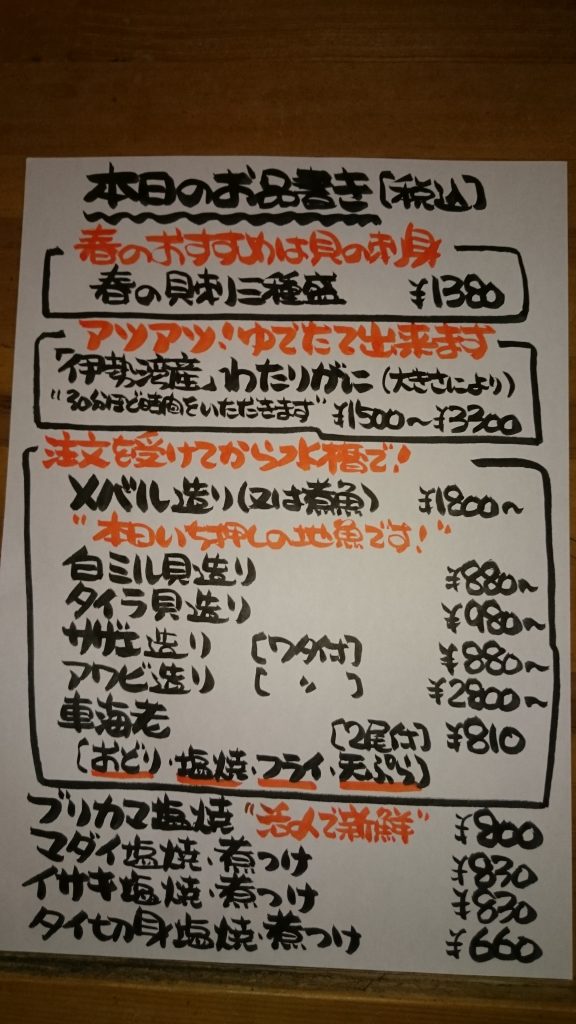 本日のお品書き[税込]
春のおすすめは貝の刺身
春の貝刺三種盛 ¥1380
アツアツ!ゆでたて出来ます
「伊勢湾産」わたりがに(大きさにより)
"30分ほど時間をいただきます" ¥1500〜¥3300
注文を受けてから水槽で!
メバル造り(又は煮魚) ¥1800〜
"本日いち押しの地魚です!"
白ミル貝造り ¥880〜
タイラ貝造り ¥980〜
サザエ造り [ワタ付] ¥880〜
アワビ造り [ 〃 ] ¥2800〜
車海老 [2尾付] ¥810
[おどり・塩焼・フライ・天ぷら]
ブリカマ塩焼 "活〆で新鮮" ¥800
マダイ塩焼・煮つけ ¥830
イサキ塩焼・煮つけ ¥830
タイ切身塩焼・煮つけ ¥660